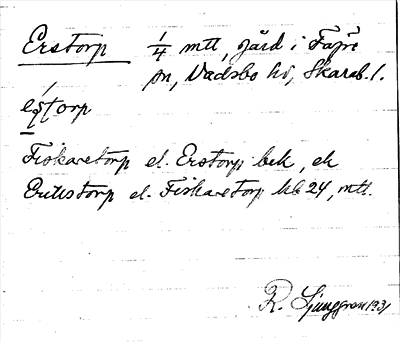 Erstorp 1/4 mtl, gård i Fägre
sn, Vadsbo hd, Skarab. l.
Fiskaretorp el. Erstorp, bek, ek
torp el. Fiskaretorp Mb 24, mtl.
R. Ljunggren 1931